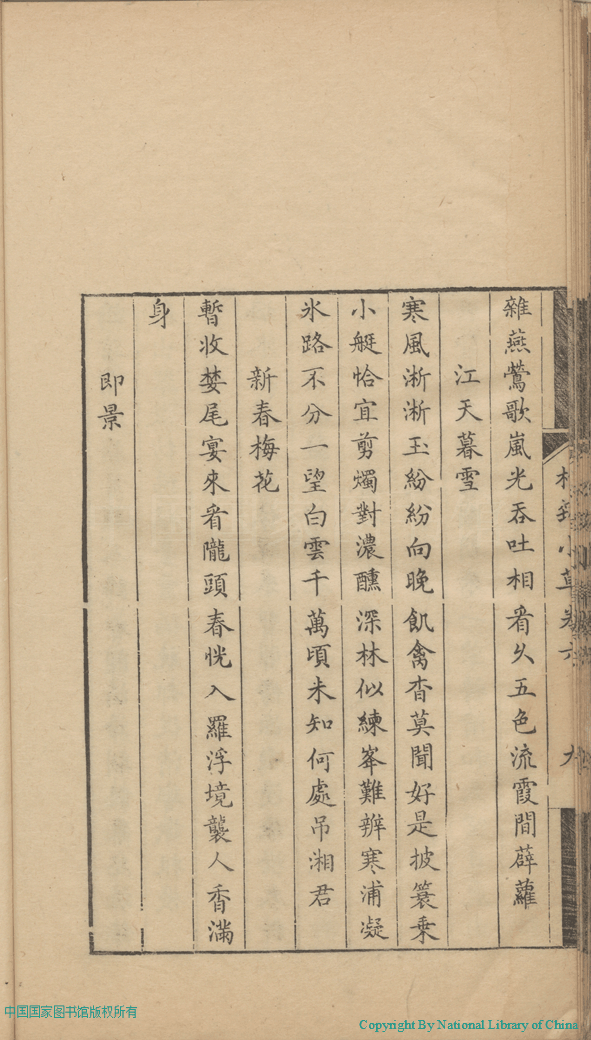 雜燕鶯歌嵐光吞吐相看久五色流霞間薜蘿
江天暮雪
寒風淅淅玉紛紛向晚飢禽杳莫聞好是披簑乘
小艇恰宜剪燭對濃醺深林似練峯難辨寒浦凝
氷路不分一望白雲千萬頃未知何處吊湘君
新春梅花
暫收婪尾宴來看隴頭春恍入羅浮境襲人香滿
身
即景
中国国家图书馆版权所有
Copyright By National Library of China